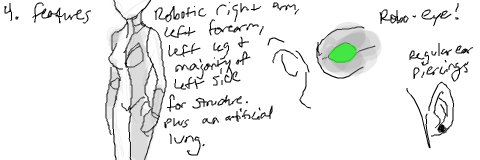 4. features
Robotic right arm,
left forearm,
left leg &
majority of
left side
for structure.
Plus an artificial
lung.
Robo-eye!
Regular ear
Piercings